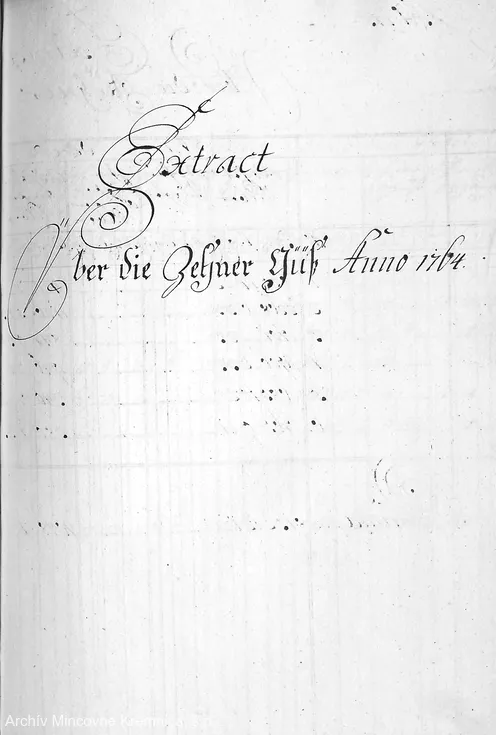 Extract
Über die Zehner Güß Anno 1764.
Archív Mincovne Kremnica